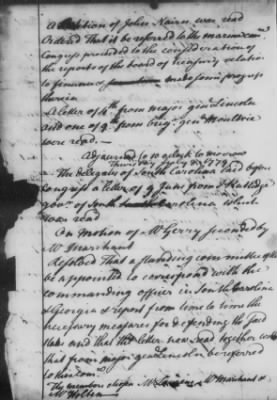 A petition of John Nairn was read
Ordered That it be referred to the marine com.
Congress proceeded to the consideration of
the reports of the board of treasury relative
to finance & made some progress
therein
A letter of 4th from major genl Lincoln
and one of 9th from brigr genl Moultrie
were read. —
Adjourned to 10 o'Clock to morrow
Thursday 1779
The delegates of South Carolina laid before
Congress a letter of 9 June from J Rutledge
govr of South Carolina which
was read
On Motion of Mr Gerry seconded by
Mr Marchant
Resolved That a standing committee of
be appointed to correspond with the
commanding officer in South Carolina
& Georgia & report from time to time the
necessary measures for defending the said
states and that the letter now read together with
that from major genl Lincoln be referred
to them
The members chosen Mr Mr Marchant &
Mr Holten